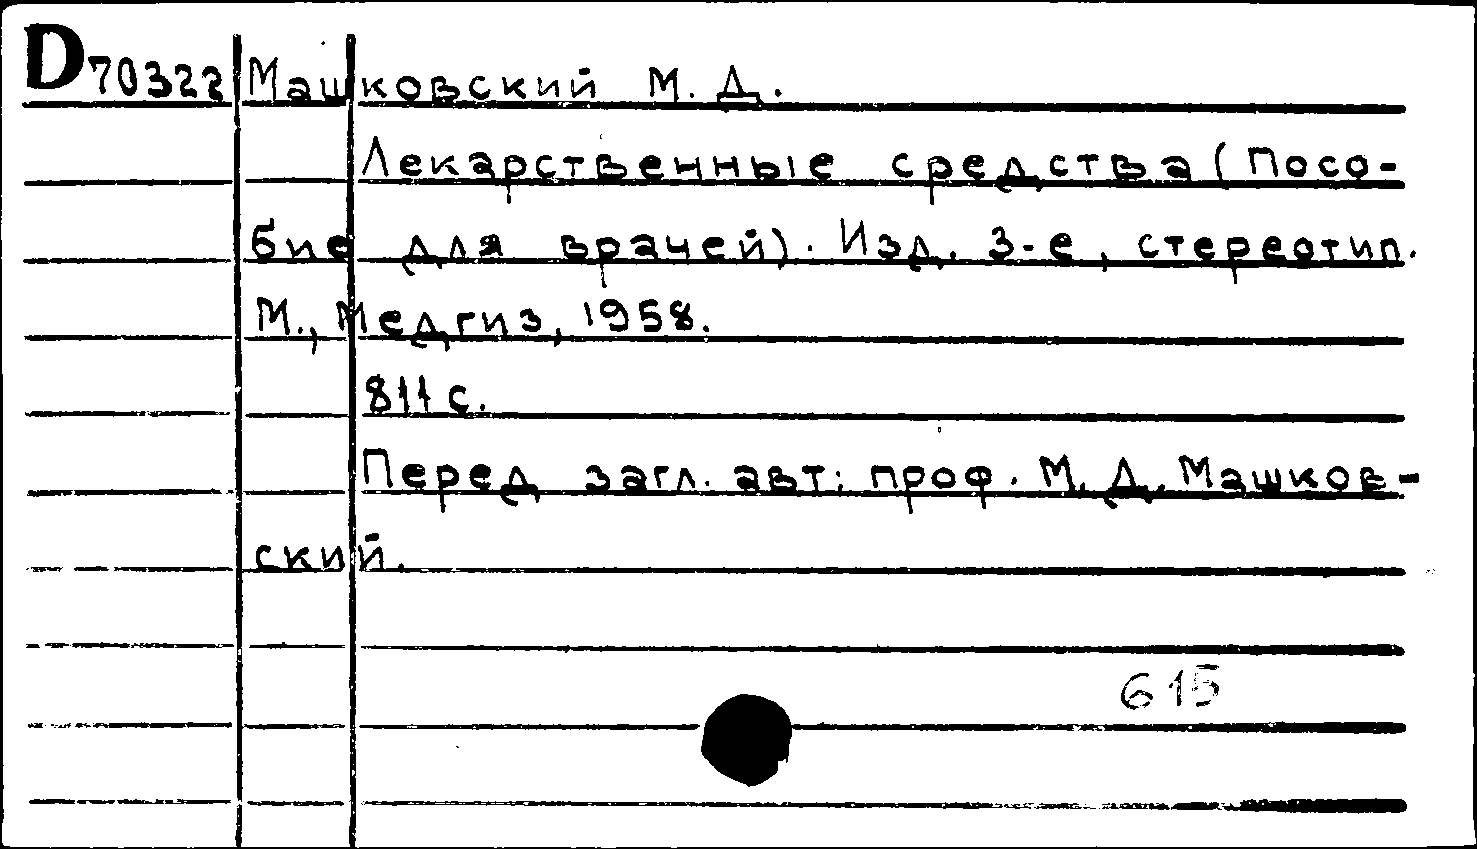 D70322 Машковский М. Д.
Лекарственные средства (Посо-
бие для врачей). Изд. 3-е, стереотип.
М., Медгиз, 1958.
811 с.
Перед загл. авт: проф. М. Д. Машков-
ский.
615